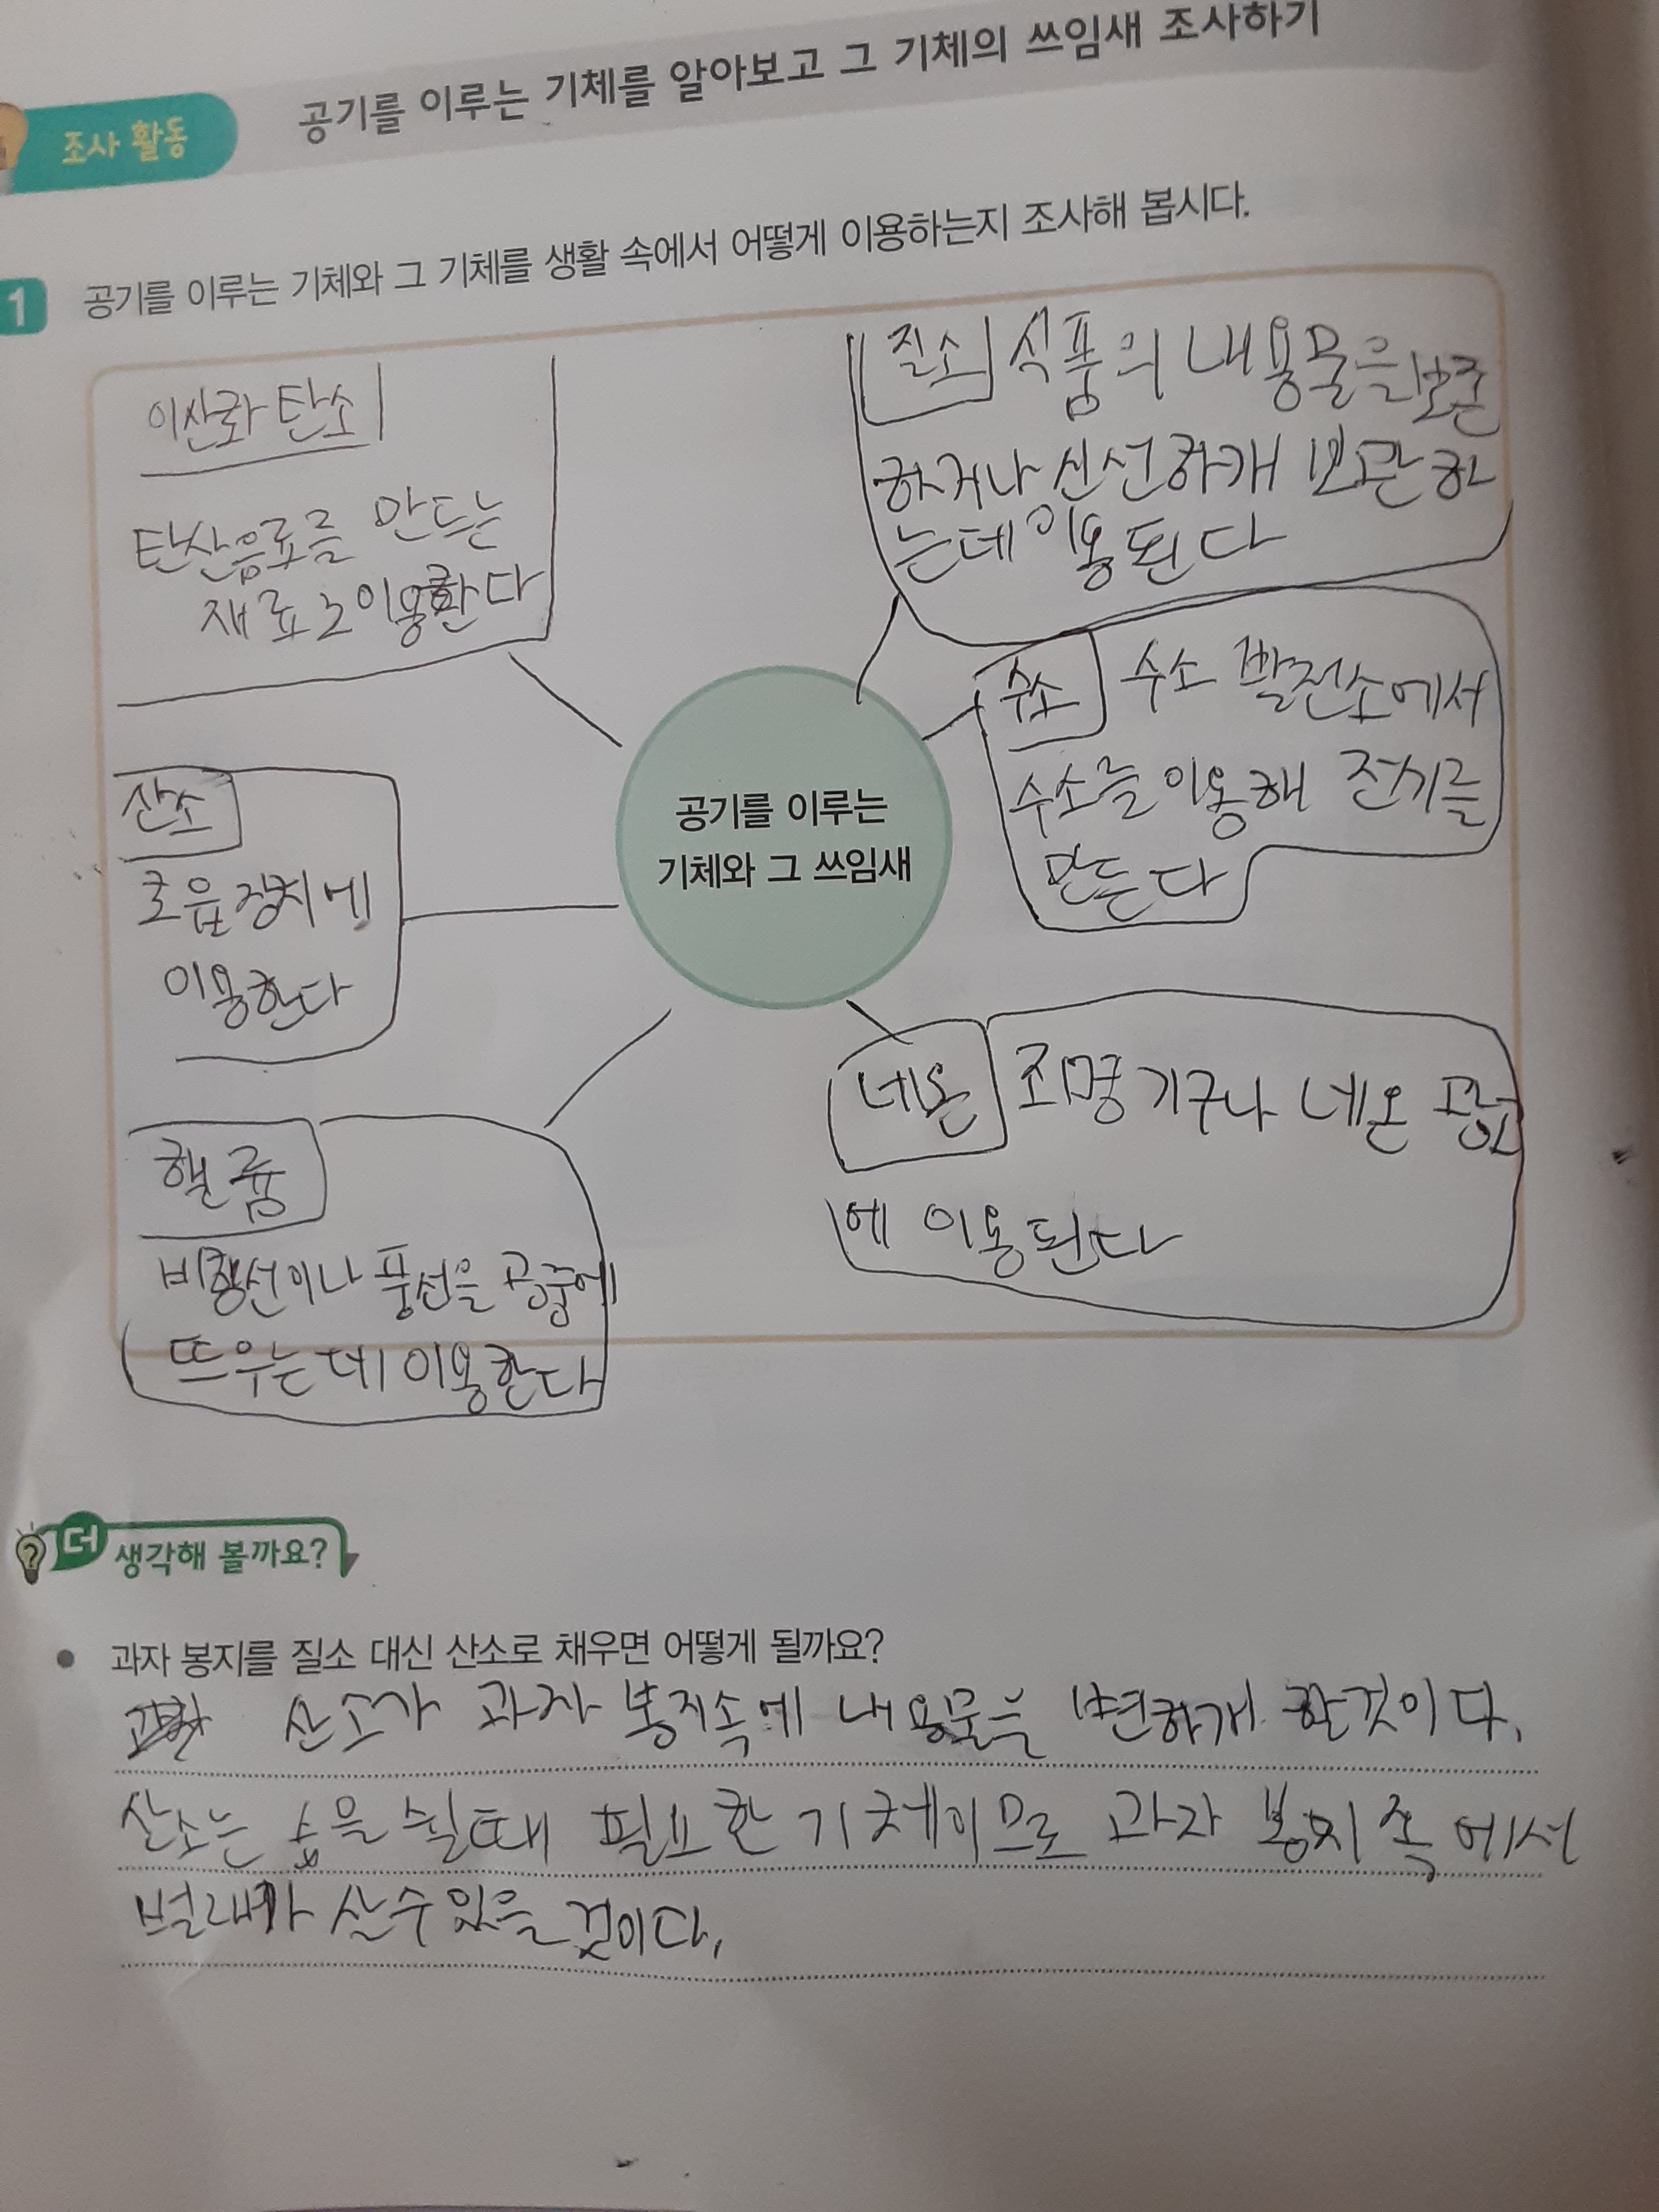 조사 활동
공기를 이루는 기체를 알아보고 그 기체의 쓰임새 조사하기
1 공기를 이루는 기체와 그 기체를 생활 속에서 어떻게 이용하는지 조사해 봅시다.
이산화탄소
탄산음료를 만드는
재료로 이용한다
질소 식품의 내용물을 보존
하거나 신선하개 보관하
는데 이용된다
수소 수소 발전소에서
수소를 이용해 전기를
만든다
공기를 이루는
기체와 그 쓰임새
산소
호흡장치에
이용한다
네온 조명기구나 네온 광고
에 이용된다
헬륨
비행선이나 풍선을 공중에
뜨우는데 이용한다
더 생각해 볼까요?
• 과자 봉지를 질소 대신 산소로 채우면 어떻게 될까요?
산소가 과자 봉지속에 내용물을 변하개 할것이다.
산소는 숨을 쉴때 필요한 기체이므로 과자 봉지 속에서
벌래가 살수있을 것이다.